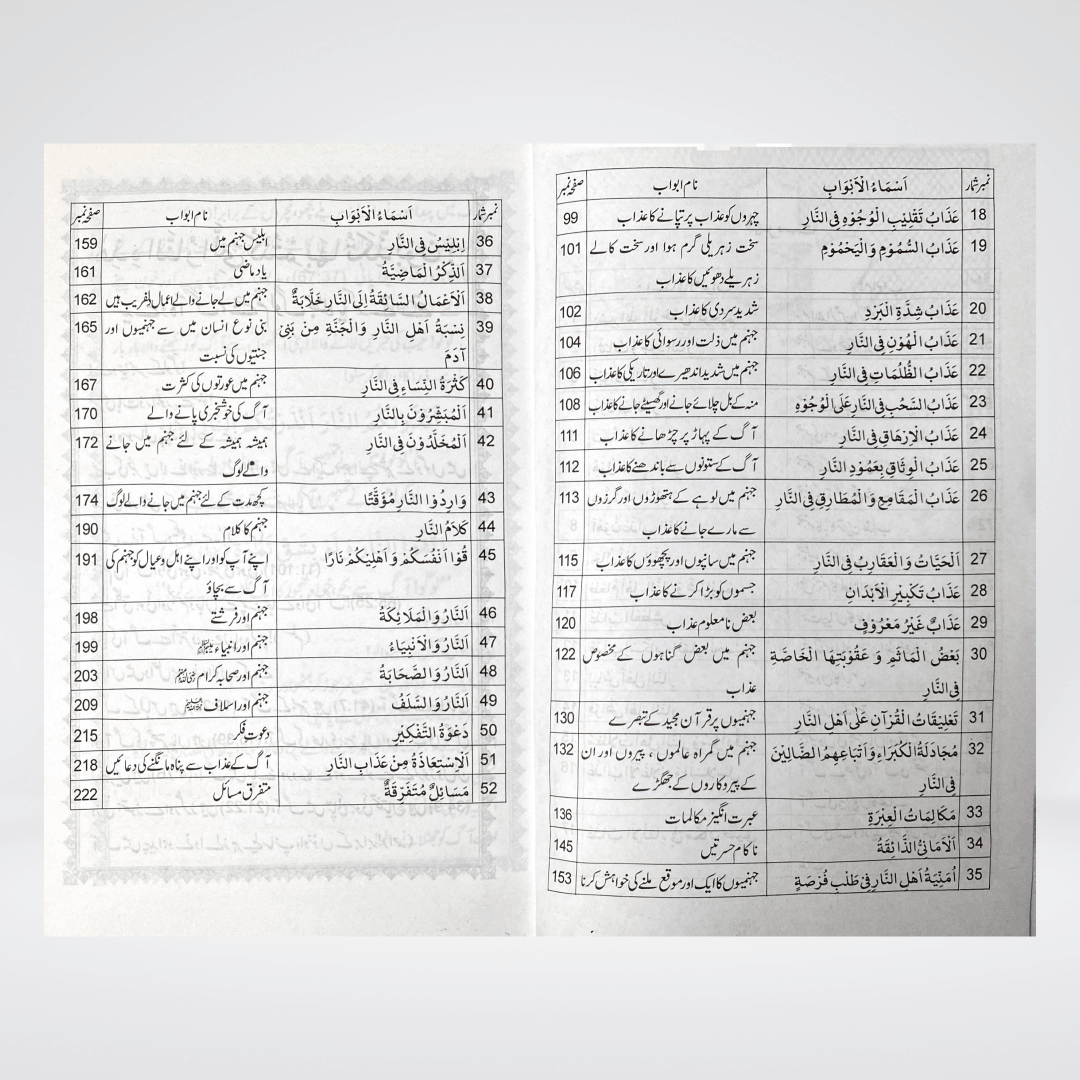 نمبر شمار اَسْمَاءُ الْاَبْوَابِ نام ابواب صفحہ نمبر
18 عَذَابُ تَقْلِيْبِ الْوُجُوْهِ فِى النَّارِ چہروں کو عذاب پر تپانے کا عذاب 99
19 عَذَابُ السُّمُوْمِ وَ الْيَحْمُوْمِ سخت زہریلی گرم ہوا اور سخت کالے 101
زہریلے دھوئیں کا عذاب
20 عَذَابُ شِدَّةِ الْبَرْدِ شدید سردی کا عذاب 102
21 عَذَابُ الْهُوْنِ فِى النَّارِ جہنم میں ذلت اور رسوائی کا عذاب 104
22 عَذَابُ الظُّلُمَاتِ فِى النَّارِ جہنم میں شدید اندھیرے اور تاریکی کا عذاب 106
23 عَذَابُ السَّحْبِ فِى النَّارِ عَلَى الْوُجُوْهِ منہ کے بل چلائے جانے اور گھسیٹے جانے کا عذاب 108
24 عَذَابُ الْاِرْهَاقِ فِى النَّارِ آگ کے پہاڑ پر چڑھانے کا عذاب 111
25 عَذَابُ الْوِثَاقِ بِعَمُوْدِ النَّارِ آگ کے ستونوں سے باندھنے کا عذاب 112
26 عَذَابُ الْمَقَامِعِ وَ الْمَطَارِقِ فِى النَّارِ جہنم میں لوہے کے ہتھوڑوں اور گرزوں 113
سے مارے جانے کا عذاب
27 اَلْحَيَّاتُ وَ الْعَقَارِبُ فِى النَّارِ جہنم میں سانپوں اور بچھوؤں کا عذاب 115
28 عَذَابُ تَكْبِيْرِ الْاَبْدَانِ جسموں کو بڑا کرنے کا عذاب 117
29 عَذَابٌ غَيْرُ مَعْرُوْفٍ بعض نا معلوم عذاب 120
30 بَعْضُ الْمَاٰثِمِ وَ عَقُوْبَتِهَا الْخَاصَّةِ جہنم میں بعض گناہوں کے مخصوص 122
فِى النَّارِ عذاب
31 تَعْلِيْقَاتُ الْقُرْآنِ عَلٰى اَهْلِ النَّارِ جہنمیوں پر قرآن مجید کے تبصرے 130
32 مُجَادَلَةُ الْكُبَرَاءِ وَ اَتْبَاعِهِمُ الضَّالِّيْنَ جہنم میں گمراہ عالموں ، پیروں اور ان 132
فِى النَّارِ کے پیروکاروں کے جھگڑے
33 مَكَالِمَاتُ الْعِبْرَةِ عبرت انگیز مکالمات 136
34 اَلْاَمَانِىُّ الذَّائِقَةُ ناکام حسرتیں 145
35 اُمْنِيَّةُ اَهْلِ النَّارِ فِىْ طَلَبِ فُرْصَةٍ جہنمیوں کا ایک اور موقع ملنے کی خواہش کرنا 153
نمبر شمار اَسْمَاءُ الْاَبْوَابِ نام ابواب صفحہ نمبر
36 اِبْلِيْسُ فِى النَّارِ ابلیس جہنم میں 159
37 اَلذِّكْرُ الْمَاضِيَّةُ یاد ماضی 161
38 اَلْاَعْمَالُ السَّائِقَةُ اِلَى النَّارِ خَلَّابَةٌ جہنم میں لے جانے والے اعمال دلفریب ہیں 162
39 نِسْبَةُ اَهْلِ النَّارِ وَ الْجَنَّةِ مِنْ بَنِىْ بنی نوع انسان میں سے جہنمیوں اور 165
آدَمَ جنتیوں کی نسبت
40 كَثْرَةُ النِّسَاءِ فِى النَّارِ جہنم میں عورتوں کی کثرت 167
41 اَلْمُبَشَّرُوْنَ بِالنَّارِ آگ کی خوشخبری پانے والے 170
42 اَلْمُخَلَّدُوْنَ فِى النَّارِ ہمیشہ ہمیشہ کے لئے جہنم میں جانے 172
والے لوگ
43 وَارِدُوْا النَّارِ مُؤَقَّتًا کچھ مدت کے لئے جہنم میں جانے والے لوگ 174
44 كَلَامُ النَّارِ جہنم کا کلام 190
45 قُوْا اَنْفُسَكُمْ وَ اَهْلِيْكُمْ نَارًا اپنے آپ کو اور اپنے اہل و عیال کو جہنم کی 191
آگ سے بچاؤ
46 اَلنَّارُ وَ الْمَلَائِكَةُ جہنم اور فرشتے 198
47 اَلنَّارُ وَ الْاَنْبِيَاءُ جہنم اور انبیاء 199
48 اَلنَّارُ وَ الصَّحَابَةُ جہنم اور صحابہ کرام 203
49 اَلنَّارُ وَ السَّلَفُ جہنم اور اسلاف 209
50 دَعْوَةُ التَّفْكِيْرِ دعوتِ فکر 215
51 اَلْاِسْتِعَاذَةُ مِنْ عَذَابِ النَّارِ آگ کے عذاب سے پناہ مانگنے کی دعائیں 218
52 مَسَائِلُ مُتَفَرِّقَةٌ متفرق مسائل 222